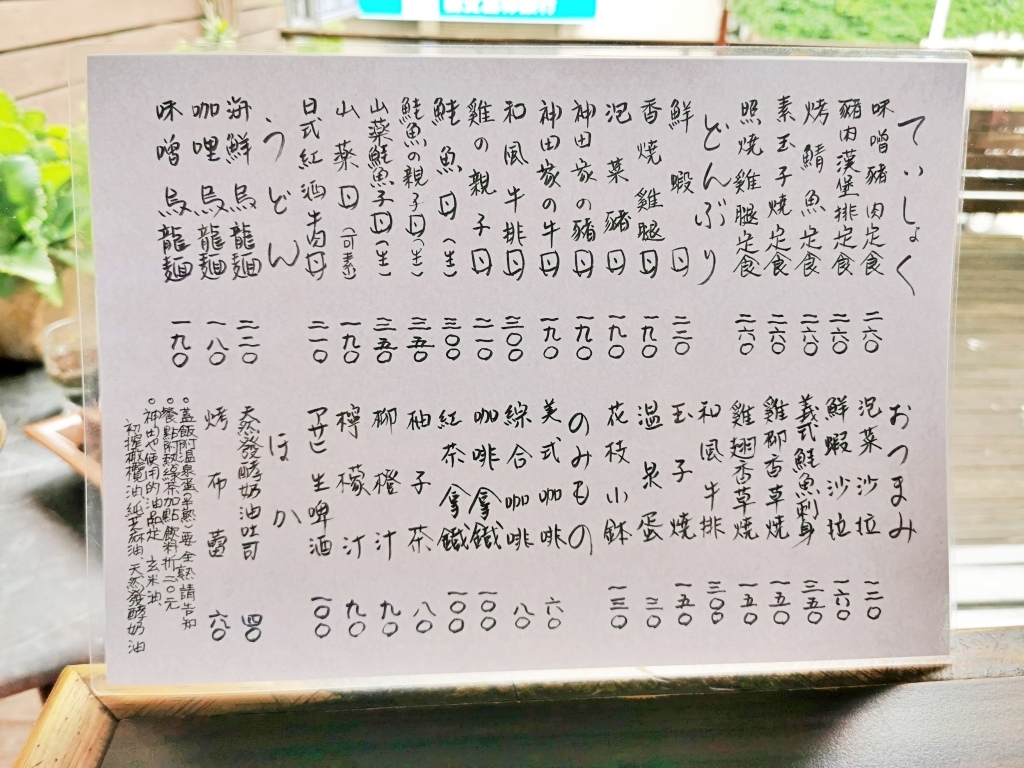 ていしょく
味噌豬肉定食 二六〇
豬肉漢堡排定食 二六〇
烤鯖魚定食 二六〇
素玉子燒定食 二六〇
照燒雞腿定食 二六〇
どんぶり
鮮蝦丼 二二〇
香燒雞腿丼 一九〇
泡菜豬丼 一九〇
神田家の豬丼 一九〇
神田家の牛丼 一九〇
和風牛排丼 三〇〇
雞の親子丼 二一〇
鮭魚丼(生) 三〇〇
鮭魚の親子丼(生) 三五〇
山藥鮭魚子丼(生) 三五〇
山藥丼(可素) 一九〇
日式紅酒牛肉丼 二一〇
うどん
海鮮烏龍麵 二二〇
咖哩烏龍麵 一八〇
味噌烏龍麵 一九〇
おつまみ
泡菜沙拉 一二〇
鮮蝦沙拉 一六〇
義式鮭魚刺身 三五〇
雞柳香草燒 一五〇
雞翅香草燒 一五〇
和風牛排 三〇〇
玉子燒 一五〇
温泉蛋 三〇
花枝小缽 一三〇
のみもの
美式咖啡 六〇
綜合咖啡 八〇
咖啡拿鐵 一〇〇
紅茶拿鐵 一〇〇
柚子茶 八〇
柳橙汁 九〇
檸檬汁 九〇
アサヒ生啤酒 一〇〇
ほか
天然發酵奶油吐司 四〇
烤布蕾 六〇
。蓋飯附溫泉蛋(半熟)要全熟請告知
。餐點附熱綠茶加點飲料折二〇元
。神田家使用的油品是玄米油、
初榨橄欖油、純芝麻油、天然發酵奶油